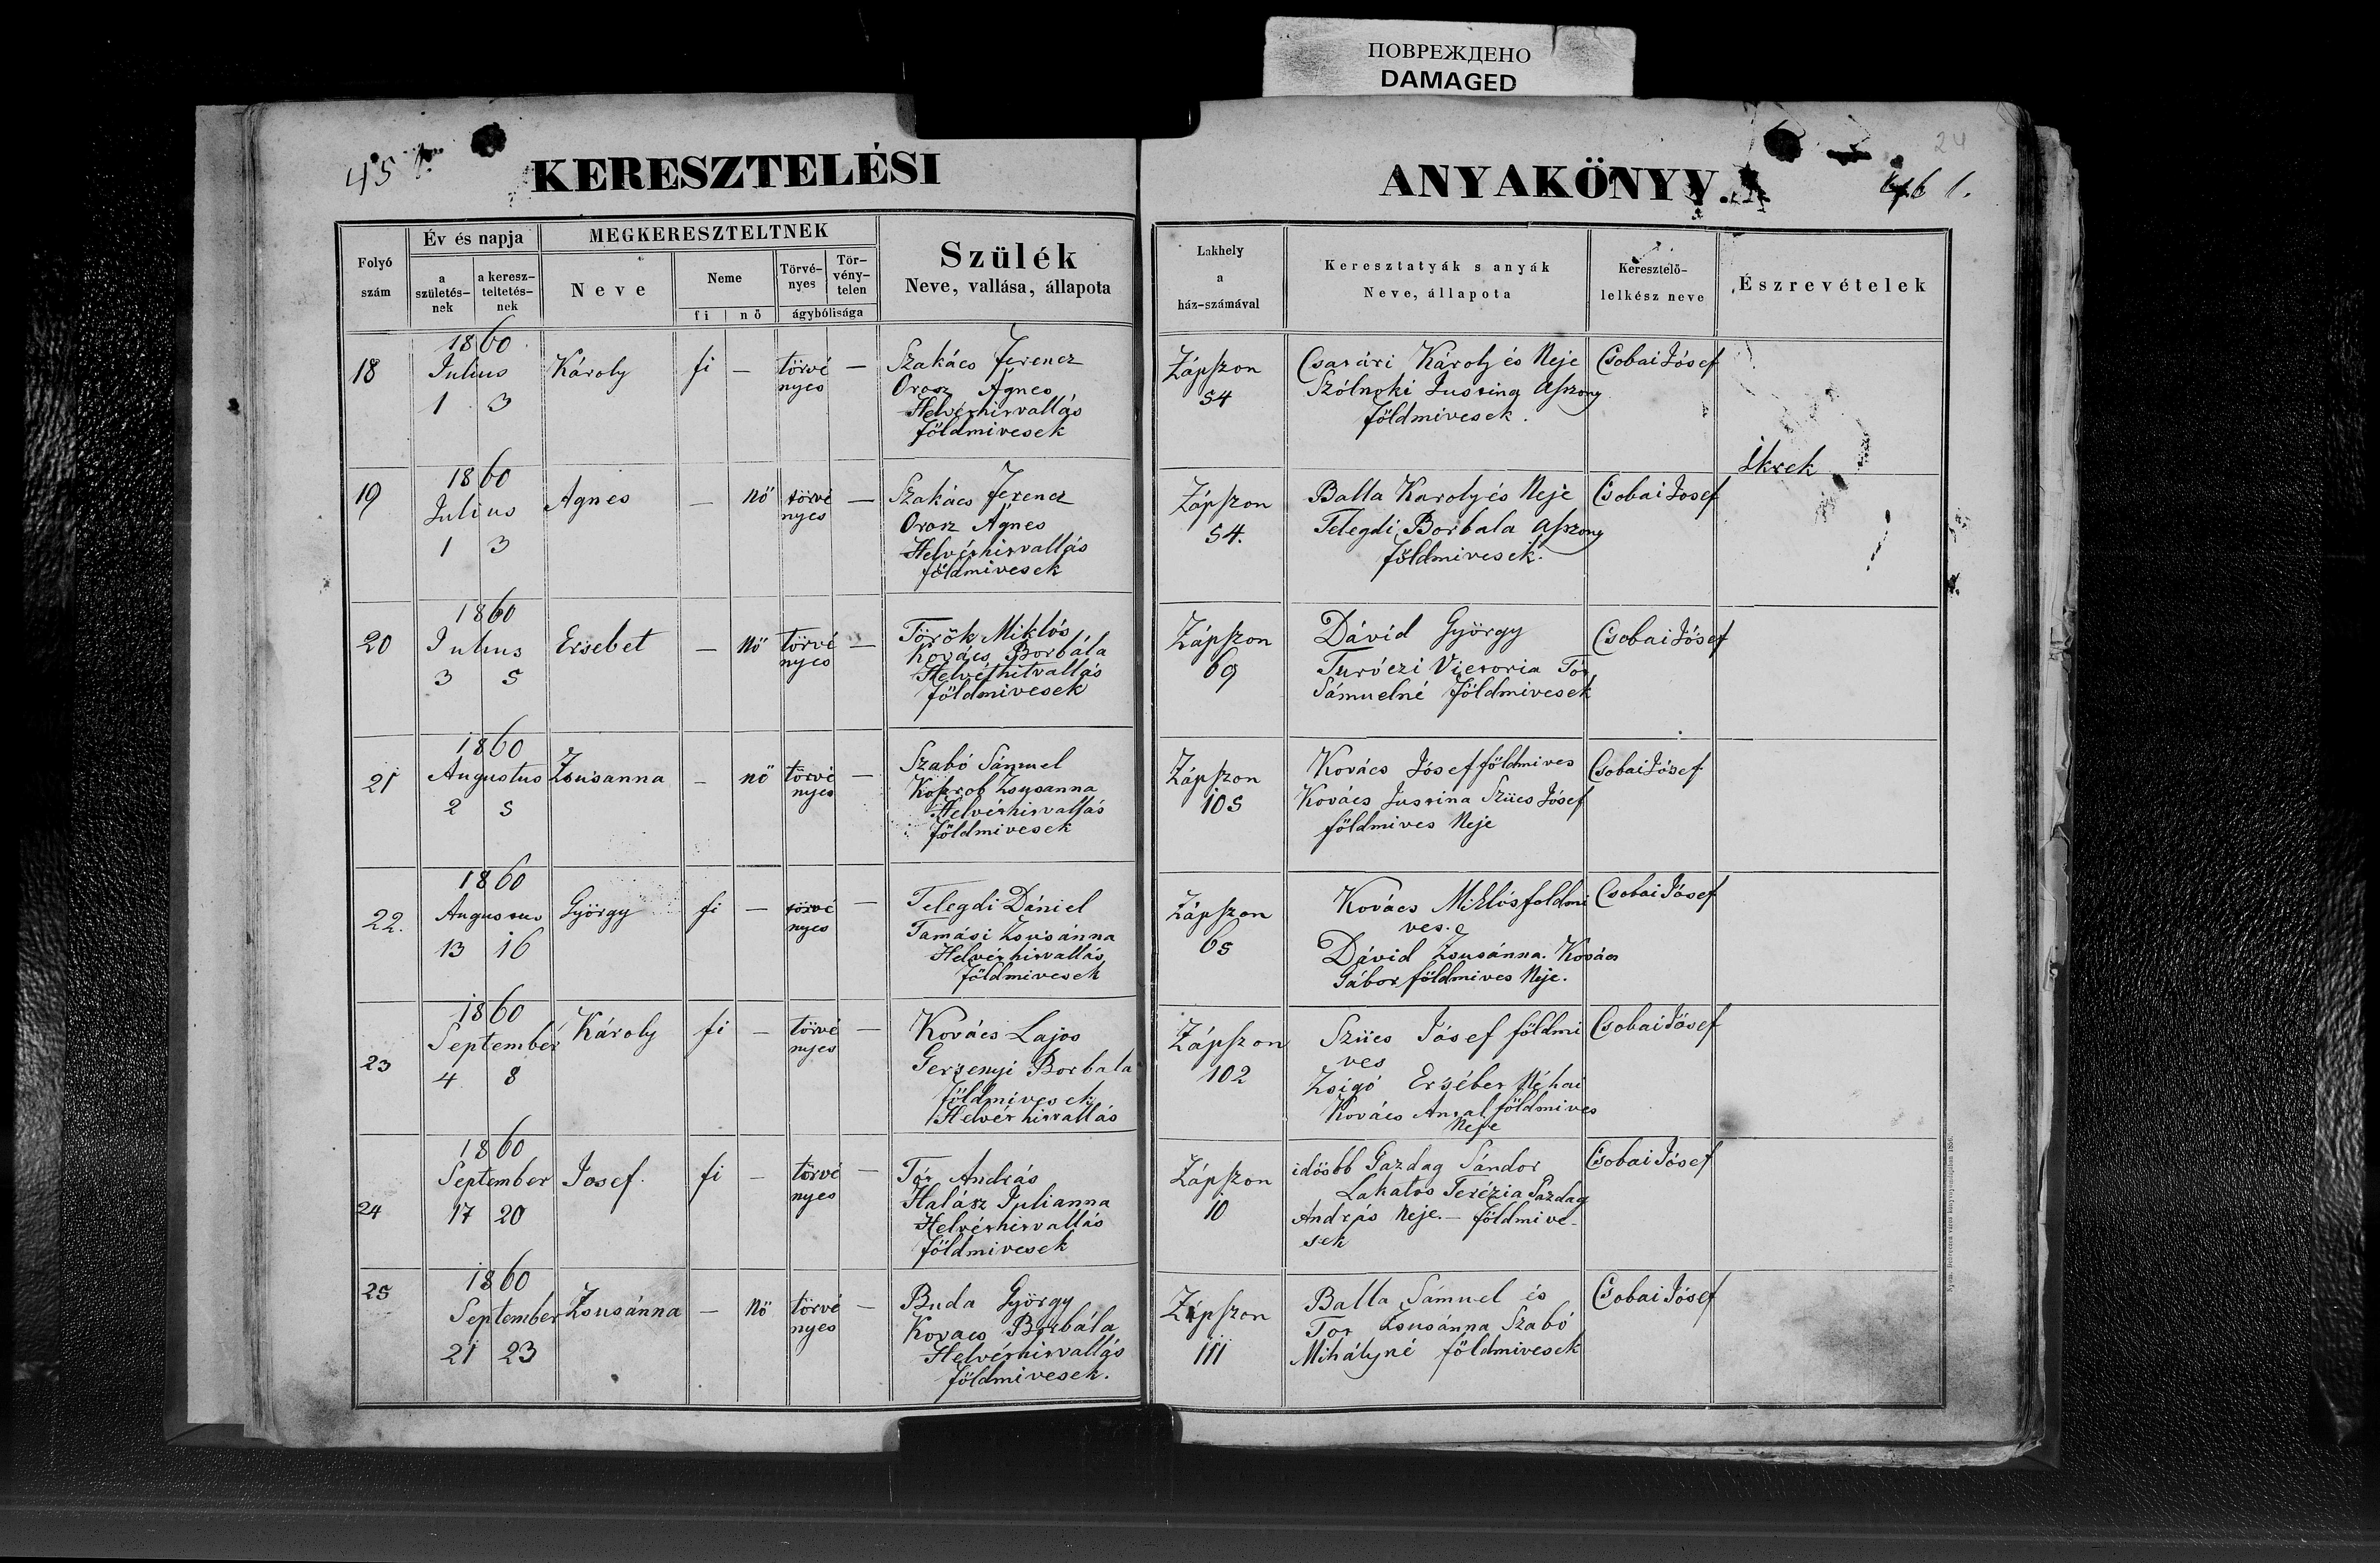 ПОВРЕЖДЕНО
DAMAGED
24
45 l.
KERESZTELÉSI
ANYAKÖNYV.
46 l.
Folyó szám
Év és napja
a születés-nek
a keresz-teltetés-nek
MEGKERESZTELTNEK
Neve
Neme
fi
nő
Törvé-nyes
Tör-vény-telen
ágybólisága
Szülék
Neve, vallása, állapota
Lakhely
a
ház-számával
Keresztatyák s anyák
Neve, állapota
Keresztelő-
lelkész neve
Észrevételek
18
1860
Julius
1 3
Károly
fi
—
törvé
nyes
—
Szakács Ferencz
Orosz Ágnes
Helvéthitvallás
földmivesek
Zápszon
54
Károly és Neje
Szólnoki Justina Aszony
földmivesek.
Csobai Jósef
Ikrek
19
1860
Julius
1 3
Agnes
—
nö
törvé
nyes
—
Szakács Ferencz
Orosz Ágnes
Helvéthitvallás
földmivesek
Zápszon
54.
Balla Karoly és Neje
Telegdi Borbala Aszony
földmivesek.
Csobai Josef
20
1860
Julius
3 5
Ersebet
—
nö
törvé
nyes
—
Török Miklós
Kovács Borbála
Helvéthitvallás
földmivesek
Zápszon
69
Dávid György
Turóczi Victoria Tór
Sámuelné földmivesek
Csobai Jósef
21
1860
Augustus
2 5
Zsusanna
—
nö
törvé
nyes
—
Szabó Sámuel
Zsusanna
Helvéthitvallás
földmivesek
Zápszon
105
Kovács Jósef földmives
Kovács Justina Szücs Jósef
földmives Neje
Csobai Jósef
22.
1860
Augustus
13 16
György
fi
—
törvé
nyes
—
Telegdi Dániel
Tamási Zsusánna
Helvéthitvallás
földmivesek
Zápszon
65
Kovács Miklós foldmi
ves. e
Dávid Zsusánna. Kovács
Gábor földmives Neje.
Csobai Jósef
23
1860
September
4 8
Károly
fi
—
törvé
nyes
—
Kovács Lajos
Gersenyi Borbala
földmivesek
Helvéthitvallás
Zápszon
102
Szücs Jósef földmi
ves
Zsigó Ersébet Néhai
Kovács Antal földmives
Neje
Csobai Jósef
24
1860
September
17 20
Josef
fi
—
törvé
nyes
—
Tór András
Halász Julianna
Helvéthitvallás
földmivesek
Zápszon
10
idösbb Gazdag Sándor
Lakatos Terézia Gazdag
András Neje. — földmive-
sek
Csobai Jósef
25
1860
September
21 23
Zsusánna
—
nö
törvé
nyes
—
Buda György
Kovacs Borbála
Helvéthitvallás
földmivesek.
Zápszon
111
Balla Sámuel és
Tor Zsusánna Szabó
Mihályné földmivesek
Csobai Jósef